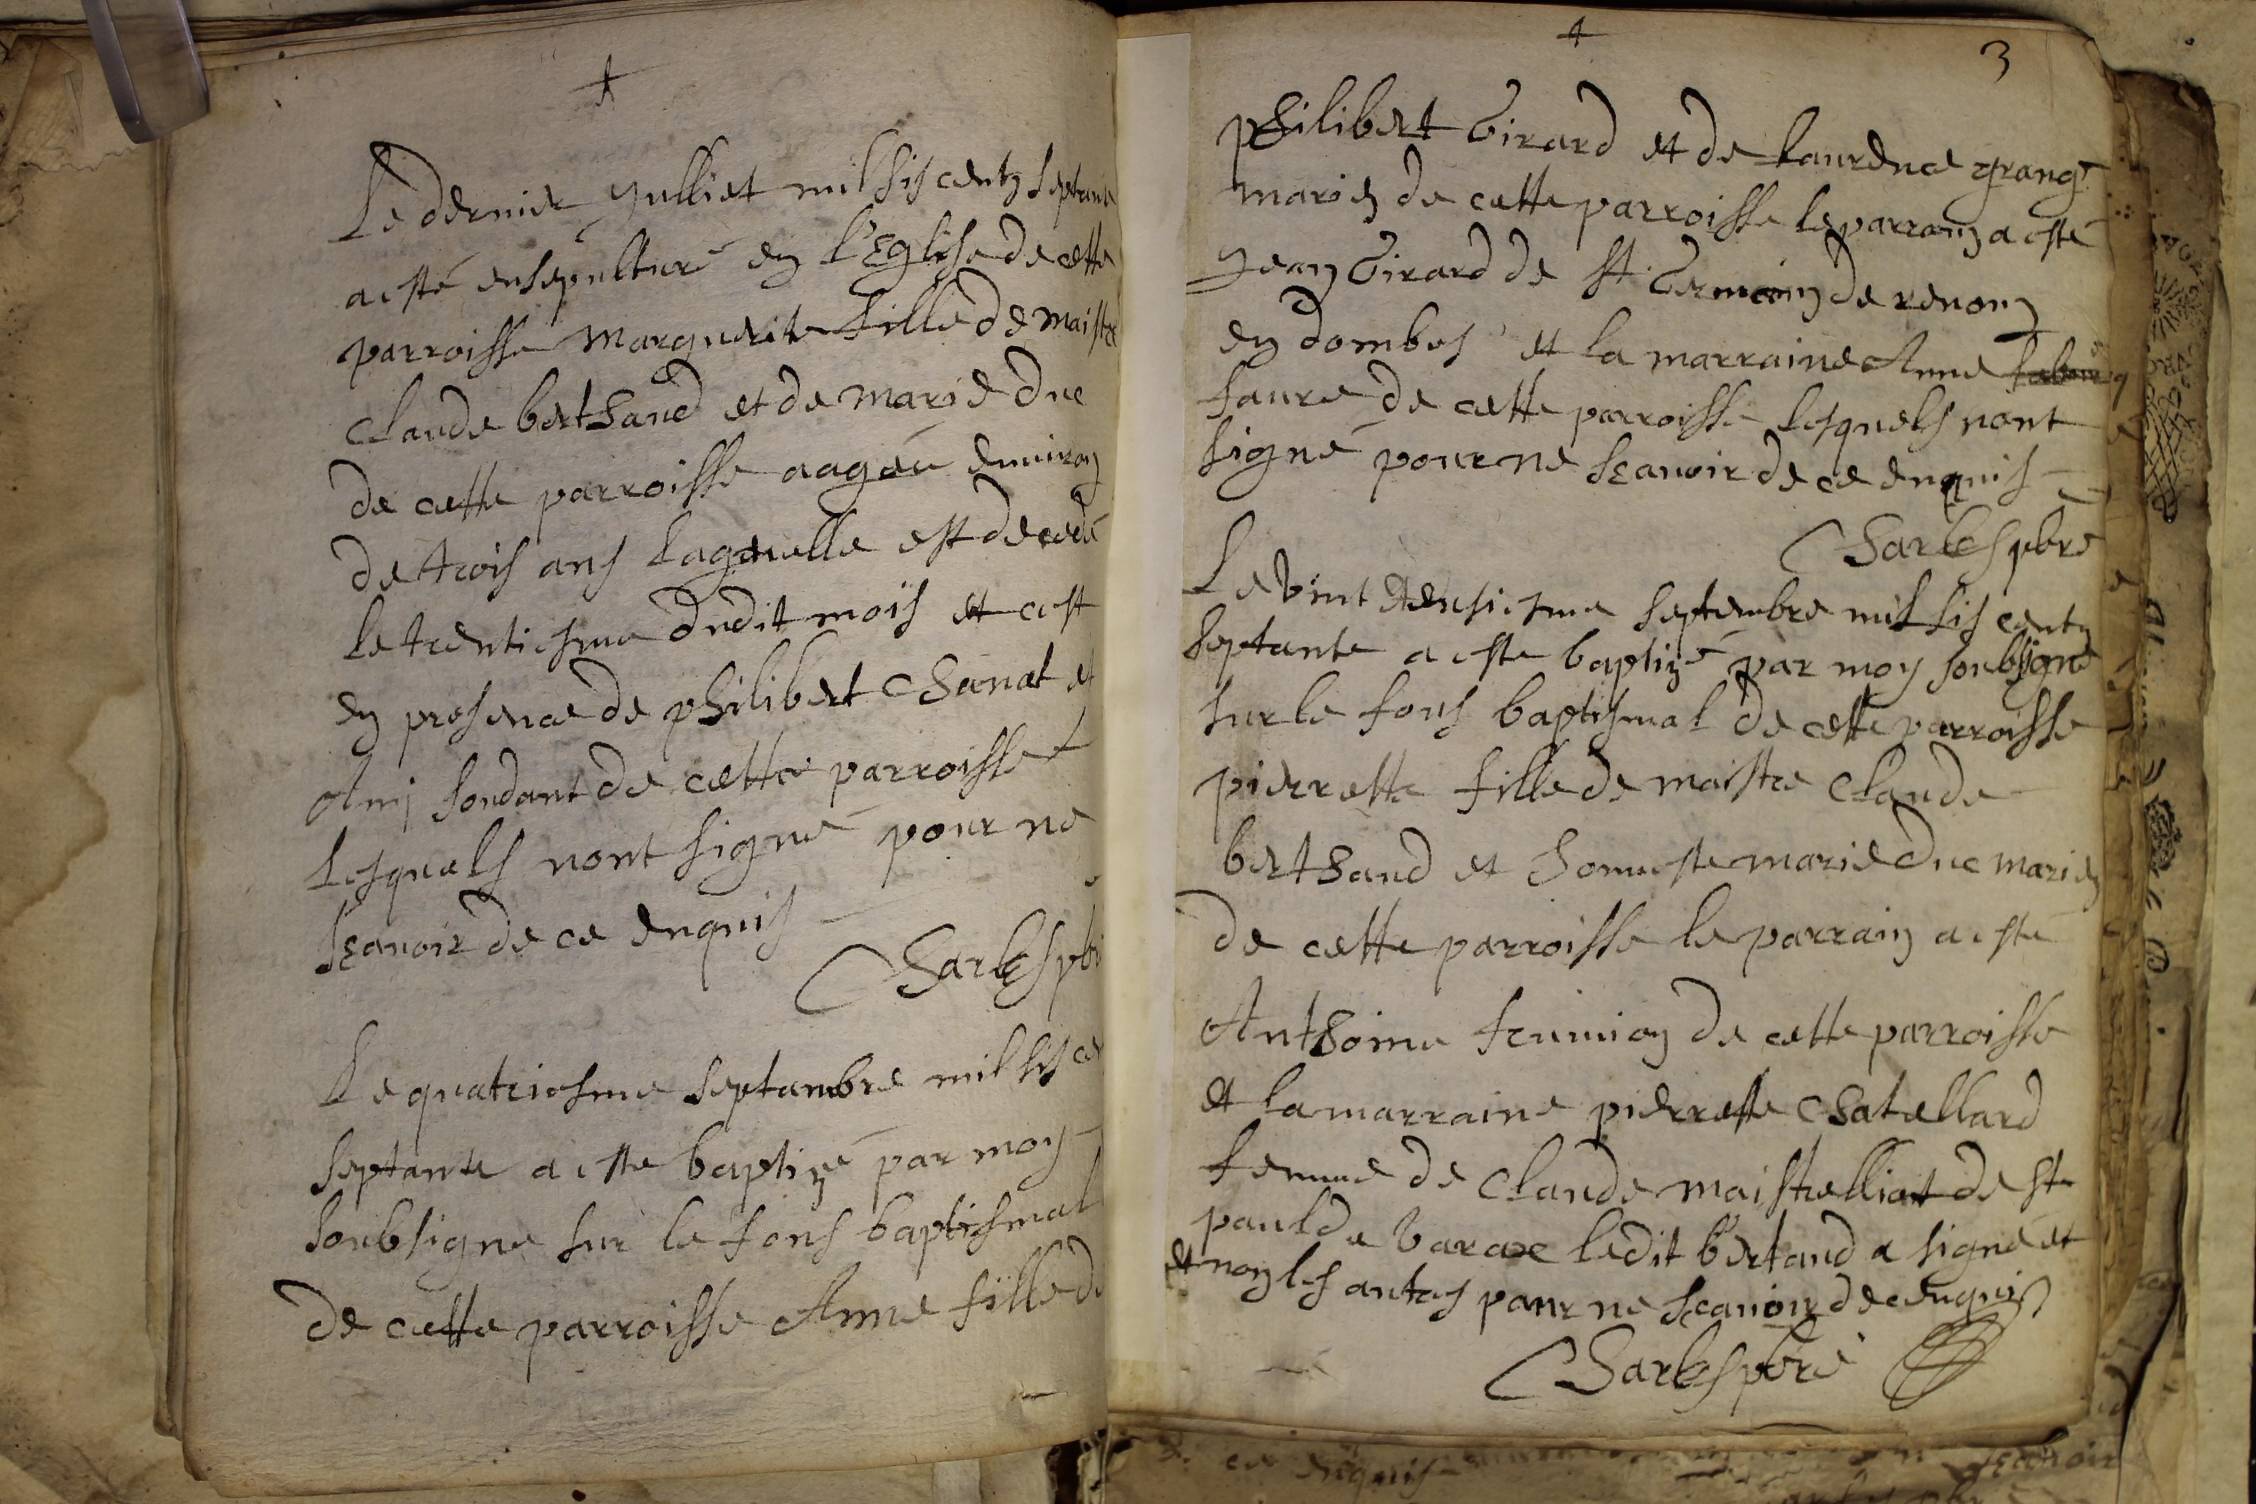 Le dernier Julliet mil sis centz septante
a esté ensepulturé en l'Eglise de cette
parroisse Marguerite fille de maistre
Claude berthaud et de marie Duc
de cette parroisse aagée enuiron
de trois ans laquelle est decedé
le trentiesme dudit mois et cest
en presence de philibert Chanat et
Ami fondant de cette parroisse
lesquels nont signé pour ne
scauoir de ce enquis
Charles pbre
Le quatriesme septambre mil sis ce
septante a este baptizé par moy
soubsigne sur le fons baptismal
de cette parroisse Anne fille de
3
philibert Girard et de Laurence grang
mariez de cette parroisse le parrain a esté
Jean Girard de st Germain de renom
en dombes et la marraine Anne
faure de cette parroisse lesquels nont
signé pour ne scauoir de ce enquis
Charles pbre
Le vint deusiesme septembre mil sis centz
septante a este baptizé par moy soubsigné
sur le fons baptismal de cette parroisse
pierrette fille de maistre Claude
berthaud et honneste marie Duc mariez
de cette parroisse le parrain a esté
Anthoine frumion de cette parroisse
et la marraine pierrette Chatellard
femme de Claude maistrelliat de st
paul de Varax ledit bertaud a signé et
et non les autres pour ne scauoir de ce enquis
Charles pbre